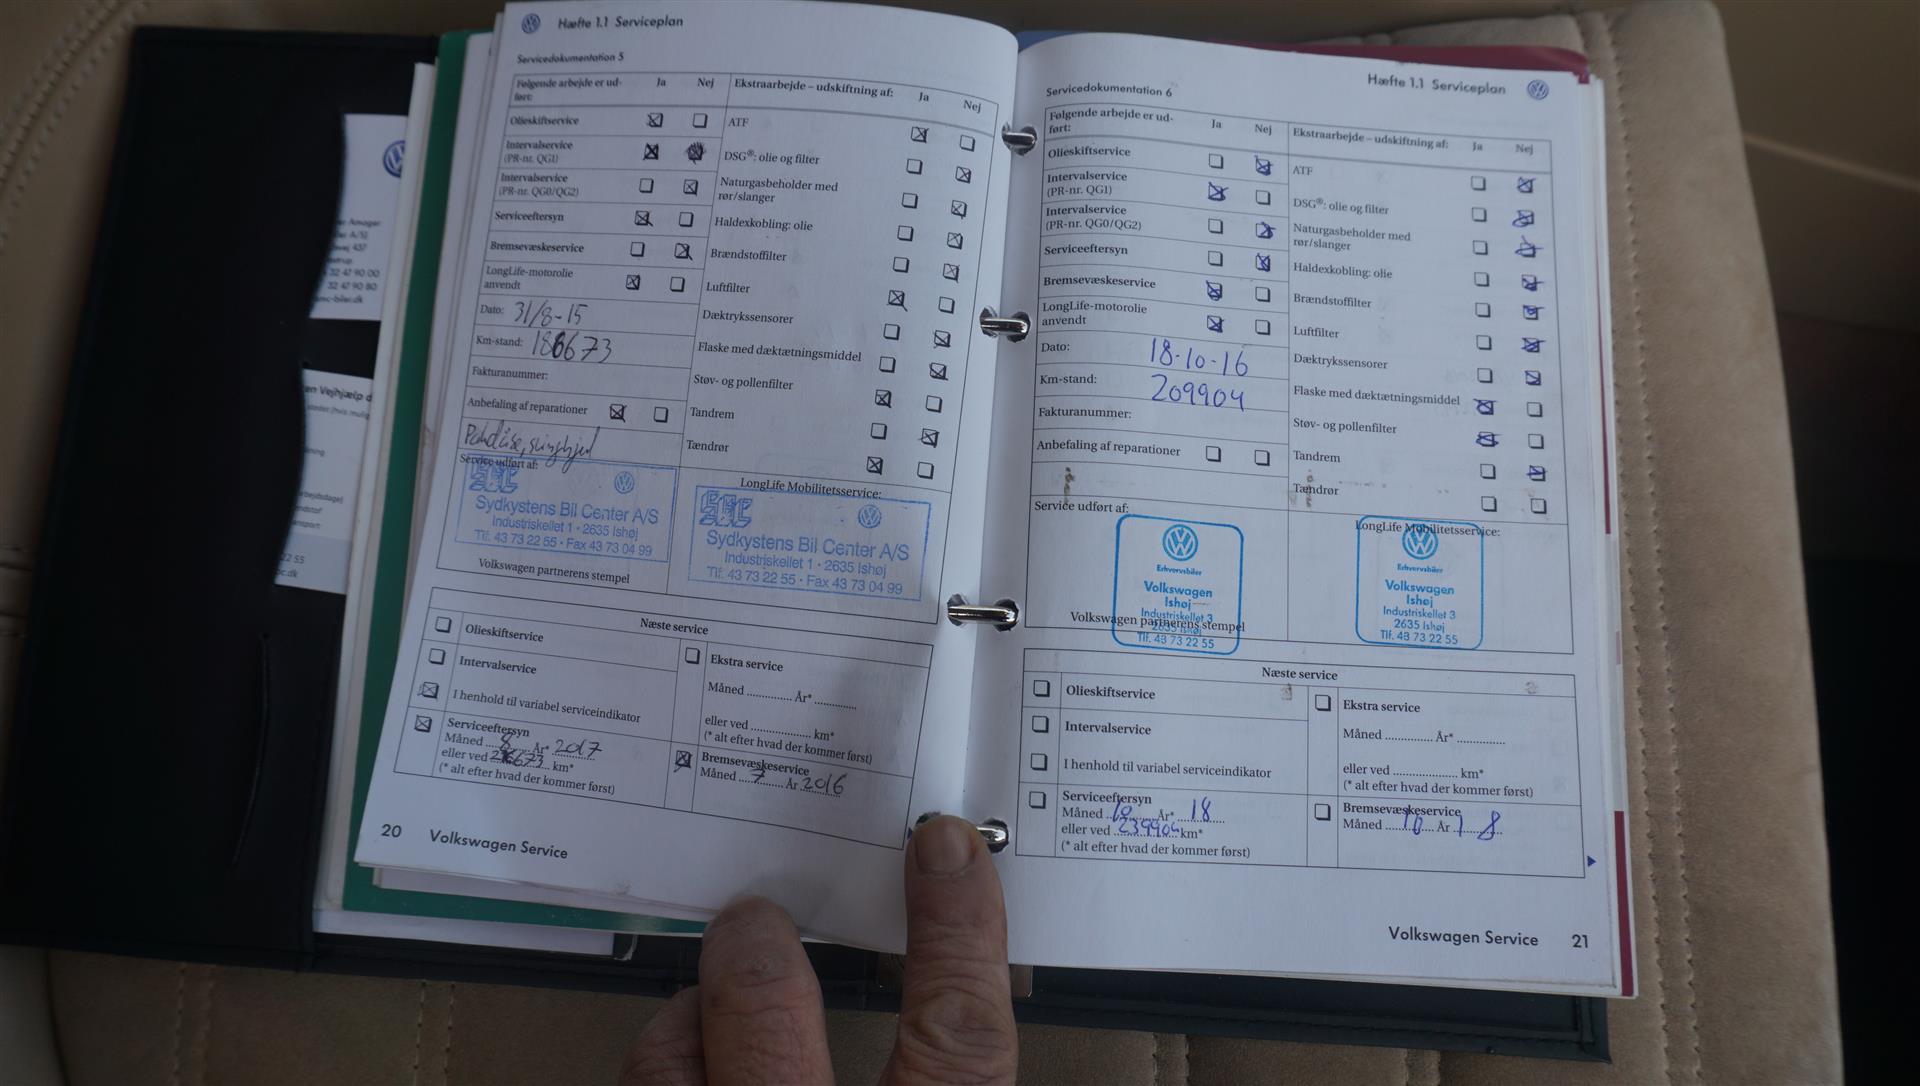 Hæfte 1.1 Serviceplan
Servicedokumentation 5
Følgende arbejde er ud-
ført:
Ja Nej
Ekstraarbejde – udskiftning af: Ja Nej
Olieskiftservice
Intervalservice
(PR-nr. QG1)
Intervalservice
(PR-nr. QG0/QG2)
Serviceeftersyn
Bremsevæskeservice
LongLife-motorolie
anvendt
Dato: 31/8-15
Km-stand: 186673
Fakturanummer:
Anbefaling af reparationer
Service udført af:
Sydkystens Bil Center A/S
Industriskellet 1 • 2635 Ishøj
Tlf. 43 73 22 55 • Fax 43 73 04 99
Volkswagen partnerens stempel
ATF
DSG®: olie og filter
Naturgasbeholder med
rør/slanger
Haldexkobling: olie
Brændstoffilter
Luftfilter
Dæktrykssensorer
Flaske med dæktætningsmiddel
Støv- og pollenfilter
Tandrem
Tændrør
LongLife Mobilitetsservice:
Sydkystens Bil Center A/S
Industriskellet 1 • 2635 Ishøj
Tlf. 43 73 22 55 • Fax 43 73 04 99
Næste service
Olieskiftservice
Intervalservice
I henhold til variabel serviceindikator
Serviceeftersyn
Måned 8 År* 2017
eller ved km*
(* alt efter hvad der kommer først)
Ekstra service
Måned .............. År* .............
eller ved .................. km*
(* alt efter hvad der kommer først)
Bremsevæskeservice
Måned 7 År 2016
20 Volkswagen Service
Hæfte 1.1 Serviceplan
Servicedokumentation 6
Følgende arbejde er ud-
ført:
Ja Nej
Ekstraarbejde – udskiftning af: Ja Nej
Olieskiftservice
Intervalservice
(PR-nr. QG1)
Intervalservice
(PR-nr. QG0/QG2)
Serviceeftersyn
Bremsevæskeservice
LongLife-motorolie
anvendt
Dato: 18-10-16
Km-stand: 209904
Fakturanummer:
Anbefaling af reparationer
Service udført af:
Erhvervsbiler
Volkswagen
Ishøj
Industriskellet 3
2635 Ishøj
Tlf. 43 73 22 55
Volkswagen partnerens stempel
ATF
DSG®: olie og filter
Naturgasbeholder med
rør/slanger
Haldexkobling: olie
Brændstoffilter
Luftfilter
Dæktrykssensorer
Flaske med dæktætningsmiddel
Støv- og pollenfilter
Tandrem
Tændrør
LongLife Mobilitetsservice:
Erhvervsbiler
Volkswagen
Ishøj
Industriskellet 3
2635 Ishøj
Tlf. 43 73 22 55
Næste service
Olieskiftservice
Intervalservice
I henhold til variabel serviceindikator
Serviceeftersyn
Måned 10 År* 18
eller ved 239904 km*
(* alt efter hvad der kommer først)
Ekstra service
Måned .............. År* .............
eller ved .................. km*
(* alt efter hvad der kommer først)
Bremsevæskeservice
Måned 10 År 18
Volkswagen Service 21
437
32 47 90 00
32 47 90 80
mc-biler.dk
Vejhjælp